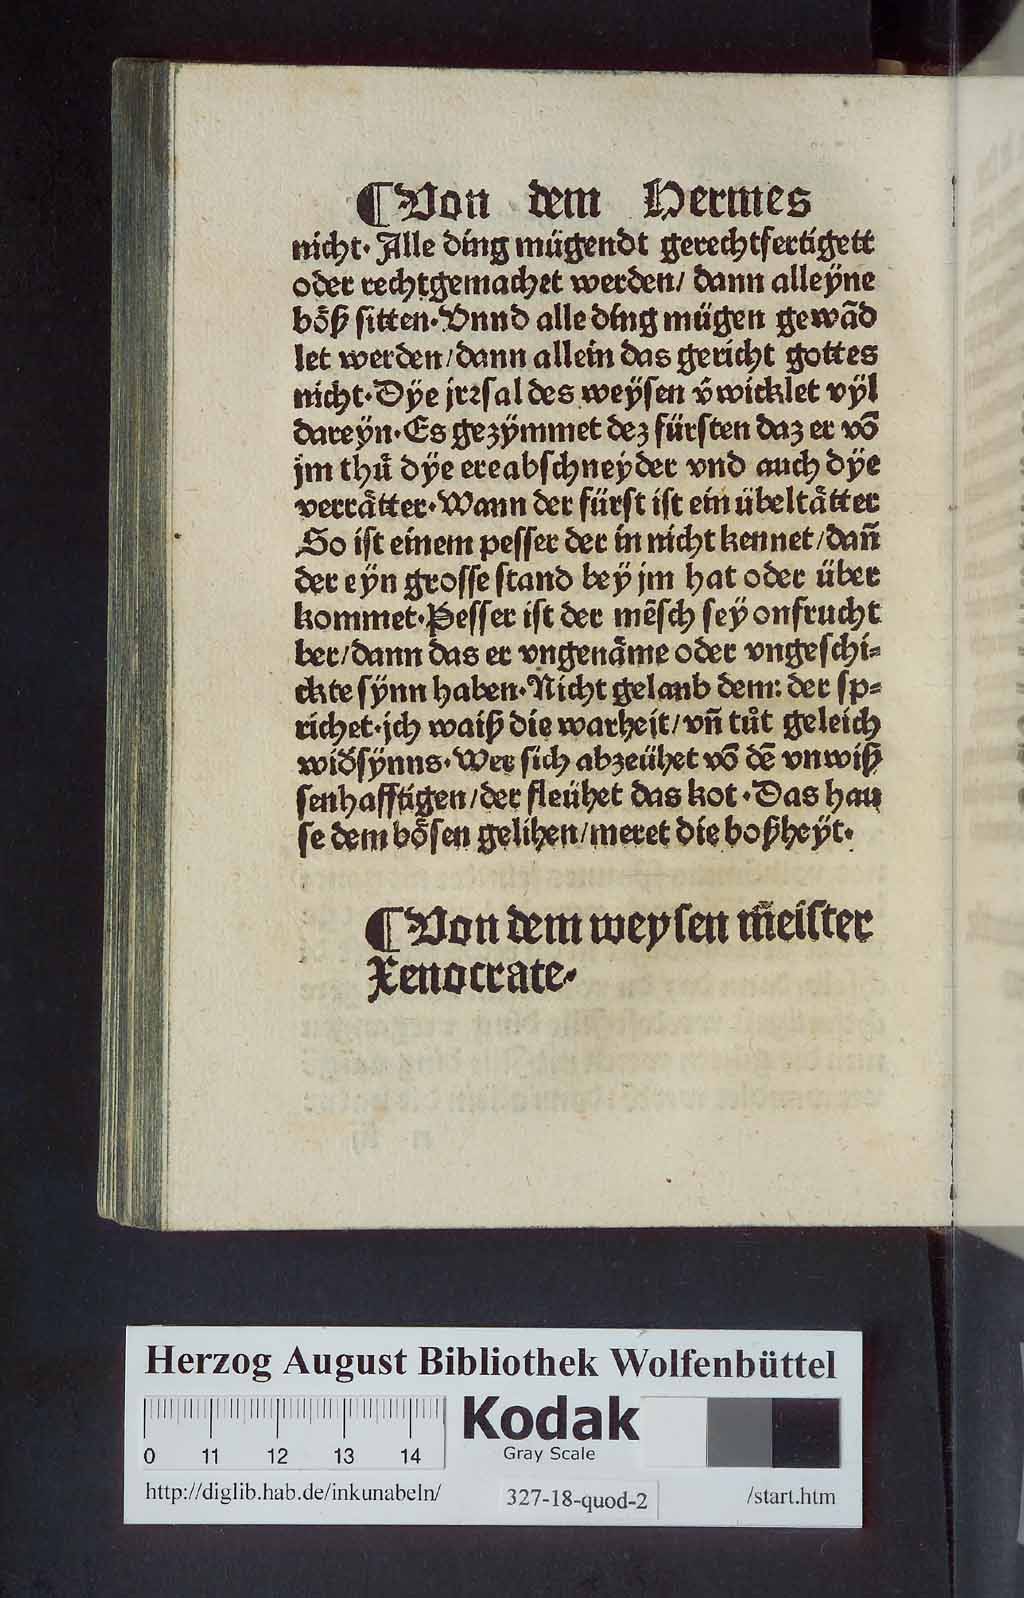 ¶Von dem Hermes
nicht· Alle ding mügendt gerechtfertigett
oder rechtgemachet werden/ dann alleÿne
bo̊ß sitten·Vnnd alle ding mügen gewãd
let werden/dann allein das gericht gottes
nicht·Dÿe jrꝛsal des weÿsen v̄wicklet vÿl
dareÿn·Es gezÿmmet dez fürsten daz er vō
jm thů dÿe ereabschneyder vnd auch dÿe
verraͤtter·Wann der fürst ist ein übeltaͤtter
So ist einem pesser der in nicht kennet/dan̄
der eÿn grosse stand beÿ jm hat oder über
kommet·Pesser ist der mēsch sey onfrucht
ber/dann das er vngenaͤme oder vngeschi⸗
ckte sÿnn haben·Nicht gelaub dem: der sp⸗
richet·jch waiß die warheit/vn̄ tůt geleich
wid̕sÿnns·Wer sich abzeühet vō dē vnwiß
senhafftigen/der fleühet das kot·Das hau
se dem boͤsen gelihen/meret die boßheÿt·
¶Von dem weysen m̄eister
Xenocrate·
Herzog August Bibliothek Wolfenbüttel
Kodak
Gray Scale
0 11 12 13 14
http://diglib.hab.de/inkunabeln/ 327-18-quod-2 /start.htm